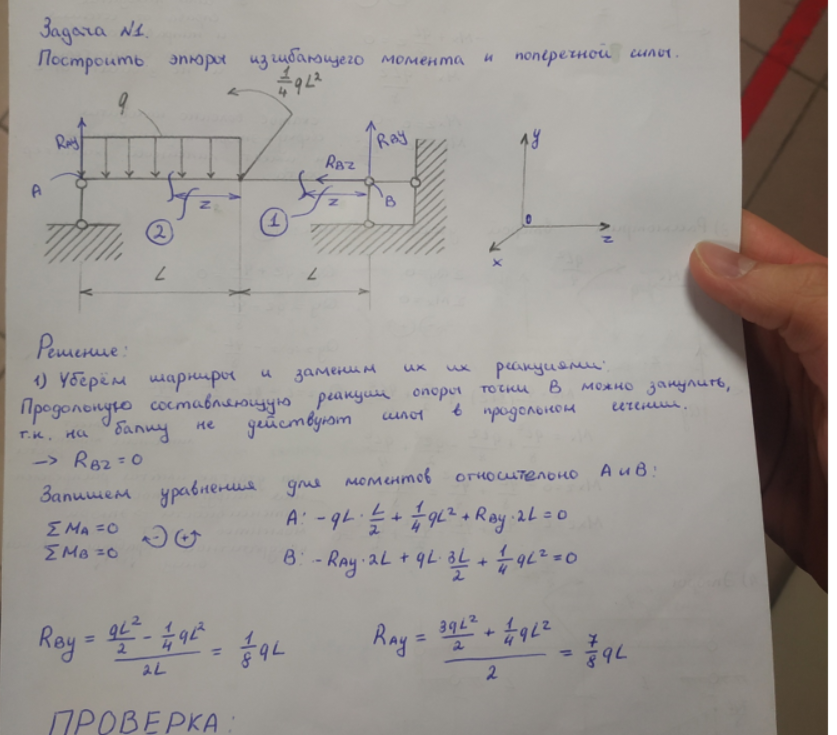 Задача №1.
Построить эпюры изгибающего момента и поперечной силы.
1/4 qL²
q
RAy
RBz
RAy
A
B
z
z
2
1
L
L
y
0
z
x
Решение:
1) Уберём шарниры и заменим их их реакциями:
Продольную составляющую реакции опоры точки B можно занулить,
т.к. на балку не действуют силы в продольном сечении.
-> RBZ = 0
Запишем уравнения для моментов относительно A и B:
ΣMA = 0
ΣMB = 0
- +
A: -qL · L/2 + 1/4 qL² + RBy · 2L = 0
B: -RAy · 2L + qL · 3L/2 + 1/4 qL² = 0
RBy = (qL²/2 - 1/4 qL²)/2L = 1/8 qL
RAy = (3qL²/2 + 1/4 qL²)/2 = 7/8 qL
ПРОВЕРКА: